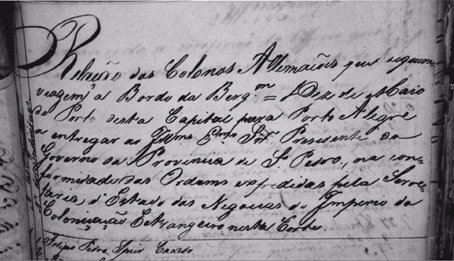 Relação dos Colonos Allemaães que seguem
viagem a Bordo da Berg.m = Dez de Maio
do Porto desta Capital para Porto Alegre
a entregar ao Illmo Exmo Snr Presidente do
Governo da Provincia de S. Pedro, na con-
formidade das Ordens expedidas pela Secre-
taria d'Estado dos Negocios do Imperio da
Colonização Estrangeira nesta Corte.
Pedro Casado